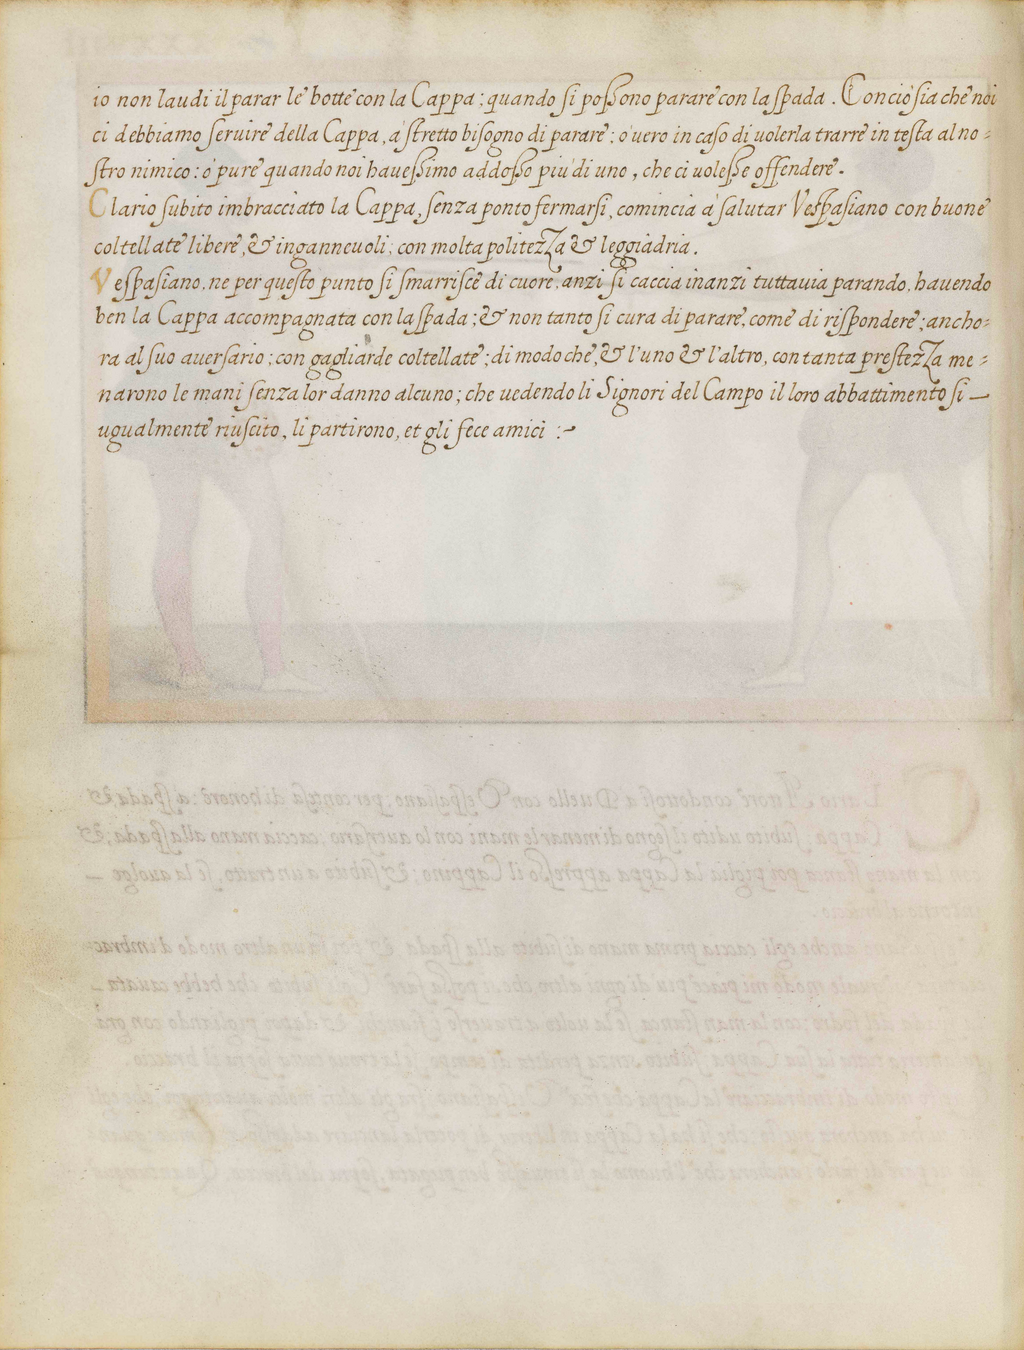 io non laudi il parar le botte con la Cappa; quando si possono parare con la spada. Conciò sia che noi
ci debbiamo seruire della Cappa, à stretto bisogno di parare; ò uero in caso di uolerla trarre in testa al no=
stro nimico: ò pure quando noi hauessimo addosso più di uno, che ci uolesse offendere.
Clario subito imbracciato la Cappa, senza ponto fermarsi, comincia à salutar Vespasiano con buone
coltellate libere, & ingannevoli; con molta politezza & leggiadria.
Vespasiano, ne per questo punto si smarrisce di cuore, anzi si caccia inanzi tuttauia parando, hauendo
ben la Cappa accompagnata con la spada; & non tanto si cura di parare, come di rispondere; ancho=
ra al suo auersario; con gagliarde coltellate; di modo che, & l'uno & l'altro, con tanta prestezza me=
narono le mani senza lor danno alcuno; che uedendo li Signori del Campo il loro abbattimento si
ugualmente riuscito, li partirono, et gli fece amici :~